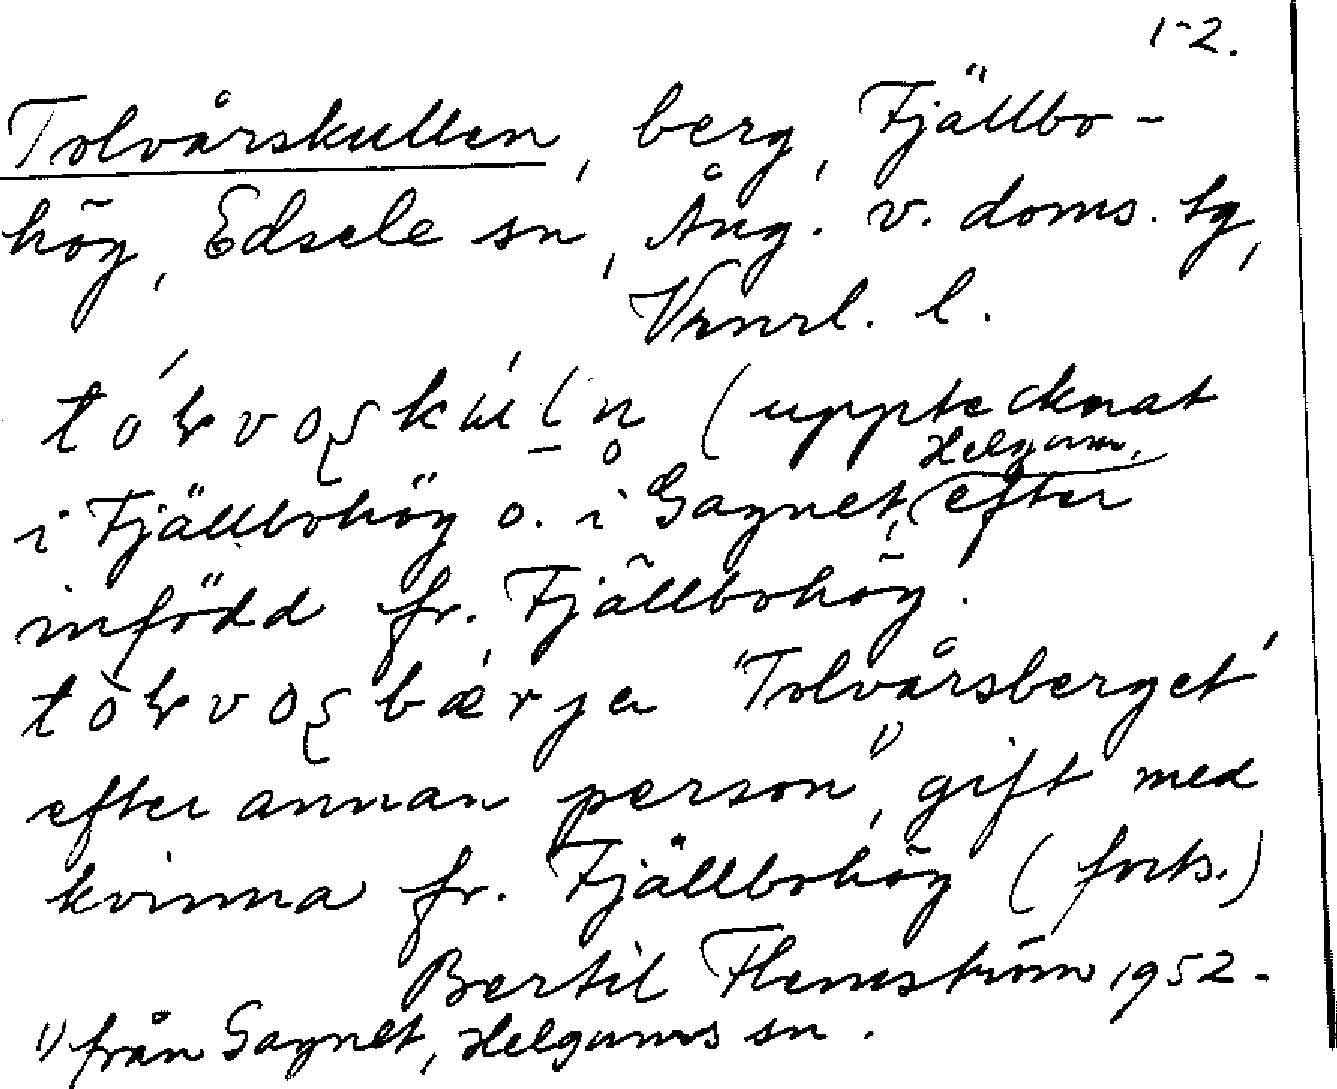 1-2.
Tolvårskullen, berg, Fjällbo-
hög, Edsele sn, Ång. v. doms. sg,
Vrnrl. l.
(upptecknat
i Fjällbohög o. i Gagnet, Helgum, efter
infödd fr. Fjällbohög.
'Tolvårsberget'
efter annan person 1), gift med
kvinna fr. Fjällbohög (forts.)
Bertil Flemström 1952.
1) från Gagnet, Helgums sn.